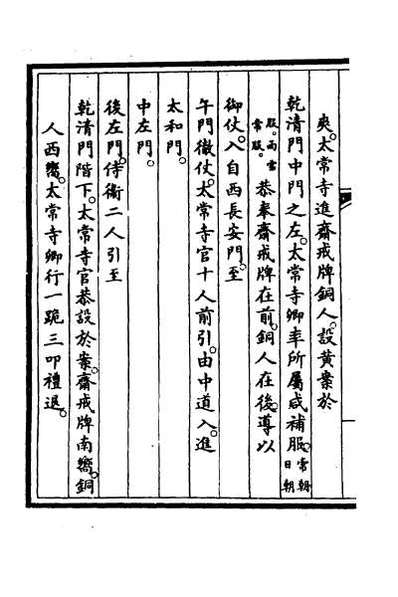 爽。太常寺進齋戒牌銅人。設黃案於
乾清門中門之左。太常寺卿率所屬咸補服。常朝日朝
服。雨雪常服。恭奉齋戒牌在前。銅人在後。導以
御仗。入自西長安門。至
午門徹仗。太常寺官十人前引。由中道入。進
太和門。
中左門。
後左門。侍衛二人引至
乾清門階下。太常寺官恭設於案。齋戒牌南嚮。銅
人西嚮。太常寺卿行一跪三叩禮退。